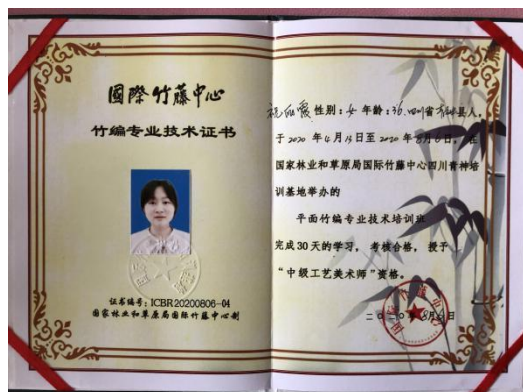 國際竹藤中心
竹编专业技术证书
证书编号：ICBR20200806-04
国家林业和草原局国际竹藤中心制
性别：女 年龄：36，四川省 县人，
于 2020 年 4 月 日至 2020 年 8月6日，在
国家林业和草原局国际竹藤中心四川青神培
训基地举办的
平面竹编专业技术培训班
完成30天的学习，考核合格，授于
“中级工艺美术师”资格。
二〇二〇年8月6日